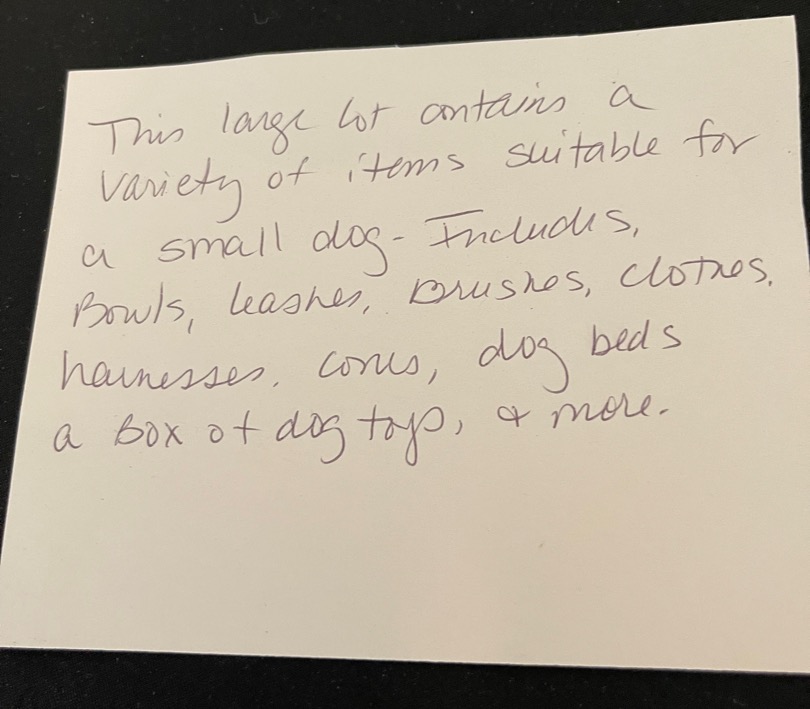 This large lot contains a
variety of items suitable for
a small dog- Includes,
Bowls, leashes, Brushes, clothes,
harnesses, cones, dog beds
a Box of dog toys, & more.